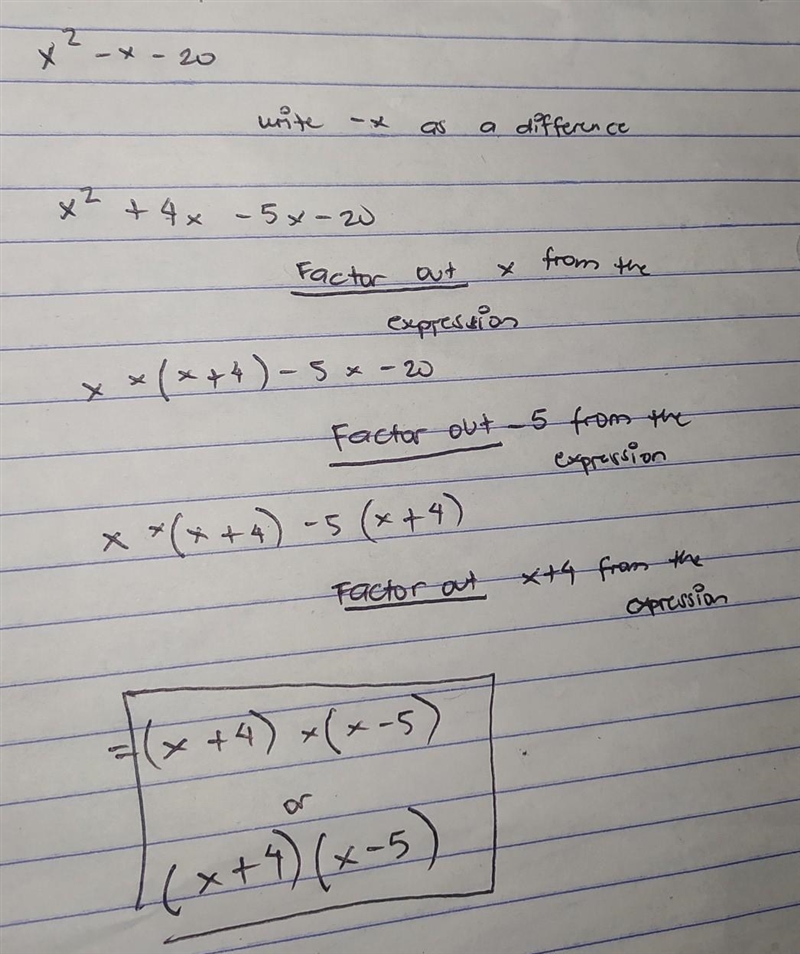 x² - x - 20
write -x as a difference
x² + 4x - 5x - 20
Factor out x from the
expression
x × (x+4) - 5x - 20
Factor out -5 from the
expression
x × (x+4) - 5 (x+4)
Factor out x+4 from the
expression
= (x+4) × (x-5)
or
(x+4)(x-5)